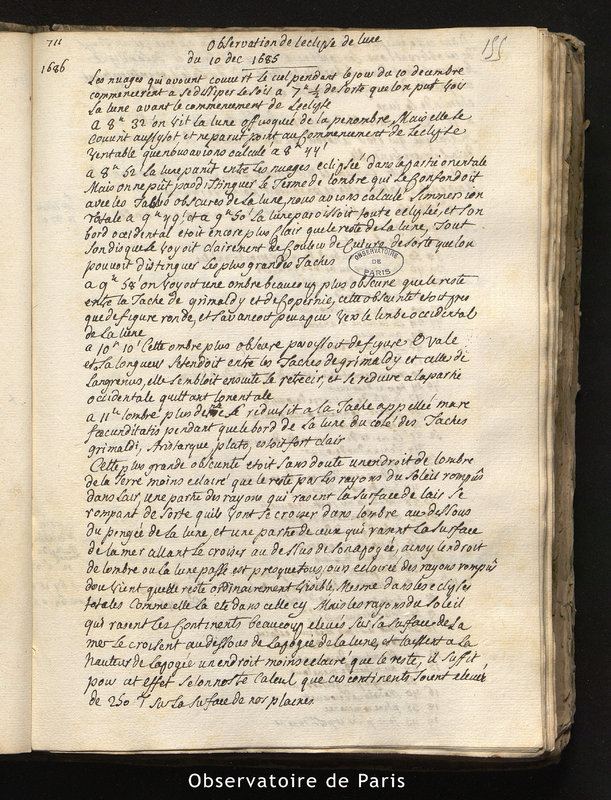 711
155
Observation de leclypse de lune
du 10 dec 1685
1686
Les nuages qui avoient couvert le ciel pendant le jour du 10 decembre
commencerent a se dissiper le soir a 7h ½ de sorte que lon put voir
la lune avant le commencement de leclypse
A 8h 32' on vit la lune offusquée de la penombre Mais elle se
couvrit aussytot et ne parut point au Commencement de leclypse
veritable que nous avions calculé a 8h 44'
a 8h 52' la lune parut entre les nuages eclipsée dans la partie orientale
Mais on ne put pas distinguer le Terme de lombre qui se Confondoit
avec les Taches obscures de la lune, nous avions calculé Limmersion
totale a 9h 49' et a 9h 50' la lune paroissoit toute eclypsée, et son
bord occidental etoit encore plus clair que le reste de la lune, Tout
son disque se voyoit clairement de Couleur de Cuivre de sorte que lon
pouvoit distinguer les plus grandes Taches
OBSERVATOIRE
DE
PARIS
a 9h 58 on voyoit une ombre beaucoup plus obscure que le reste
entre la Tache de grimaldy et de Copernic, cette obscurité etoit pres
que de figure ronde, et savancoit peu a peu vers le limbe occidental
de la lune
a 10h 10' Cette ombre plus obscure paroissoit de figure Ovale
et sa longueur setendoit entre les Taches de grimaldy et celles de
Langrenus, elle sembloit ensuite se retrecir, et se reduire a la partie
occidentale quittant lorientale
a 11h lombre plus se reduisit a la Tache appellée mare
fœcunditatis pendant que le bord de la lune du coté des Taches
grimaldi, Aristarque pluto, estoit fort clair
Cette plus grande obscurité etoit sans doute un endroit de lombre
de la Terre moins eclairé que le reste par les rayons du Soleil rompûs
dans lair une partie des rayons qui rasent la surface de lair se
rompant de sorte quils vont se croiser dans lombre au dessous
du perigée de la lune, et une partie de ceux qui rasent la surface
de la mer allant se croiser au dessus de son apogée, ainsy lendroit
de lombre ou la lune passe est presque tousjours eclairée des rayons rompûs
dou vient quelle reste ordinairement visible Mesme dans les eclypses
totales Comme elle la eté dans celle cy. Mais les rayons du Soleil
qui rasent les Continents beaucoup elevés sur la surface de la
mer se croisent au dessous de lapogée de la lune, et laissent a la
hauteur de lapogée un endroit moins eclairé que le reste, il suffit
pour cet effet selon nostre Calcul que ces continents soient elevés
de 250 T sur la surface de nos plaines
Observatoire de Paris